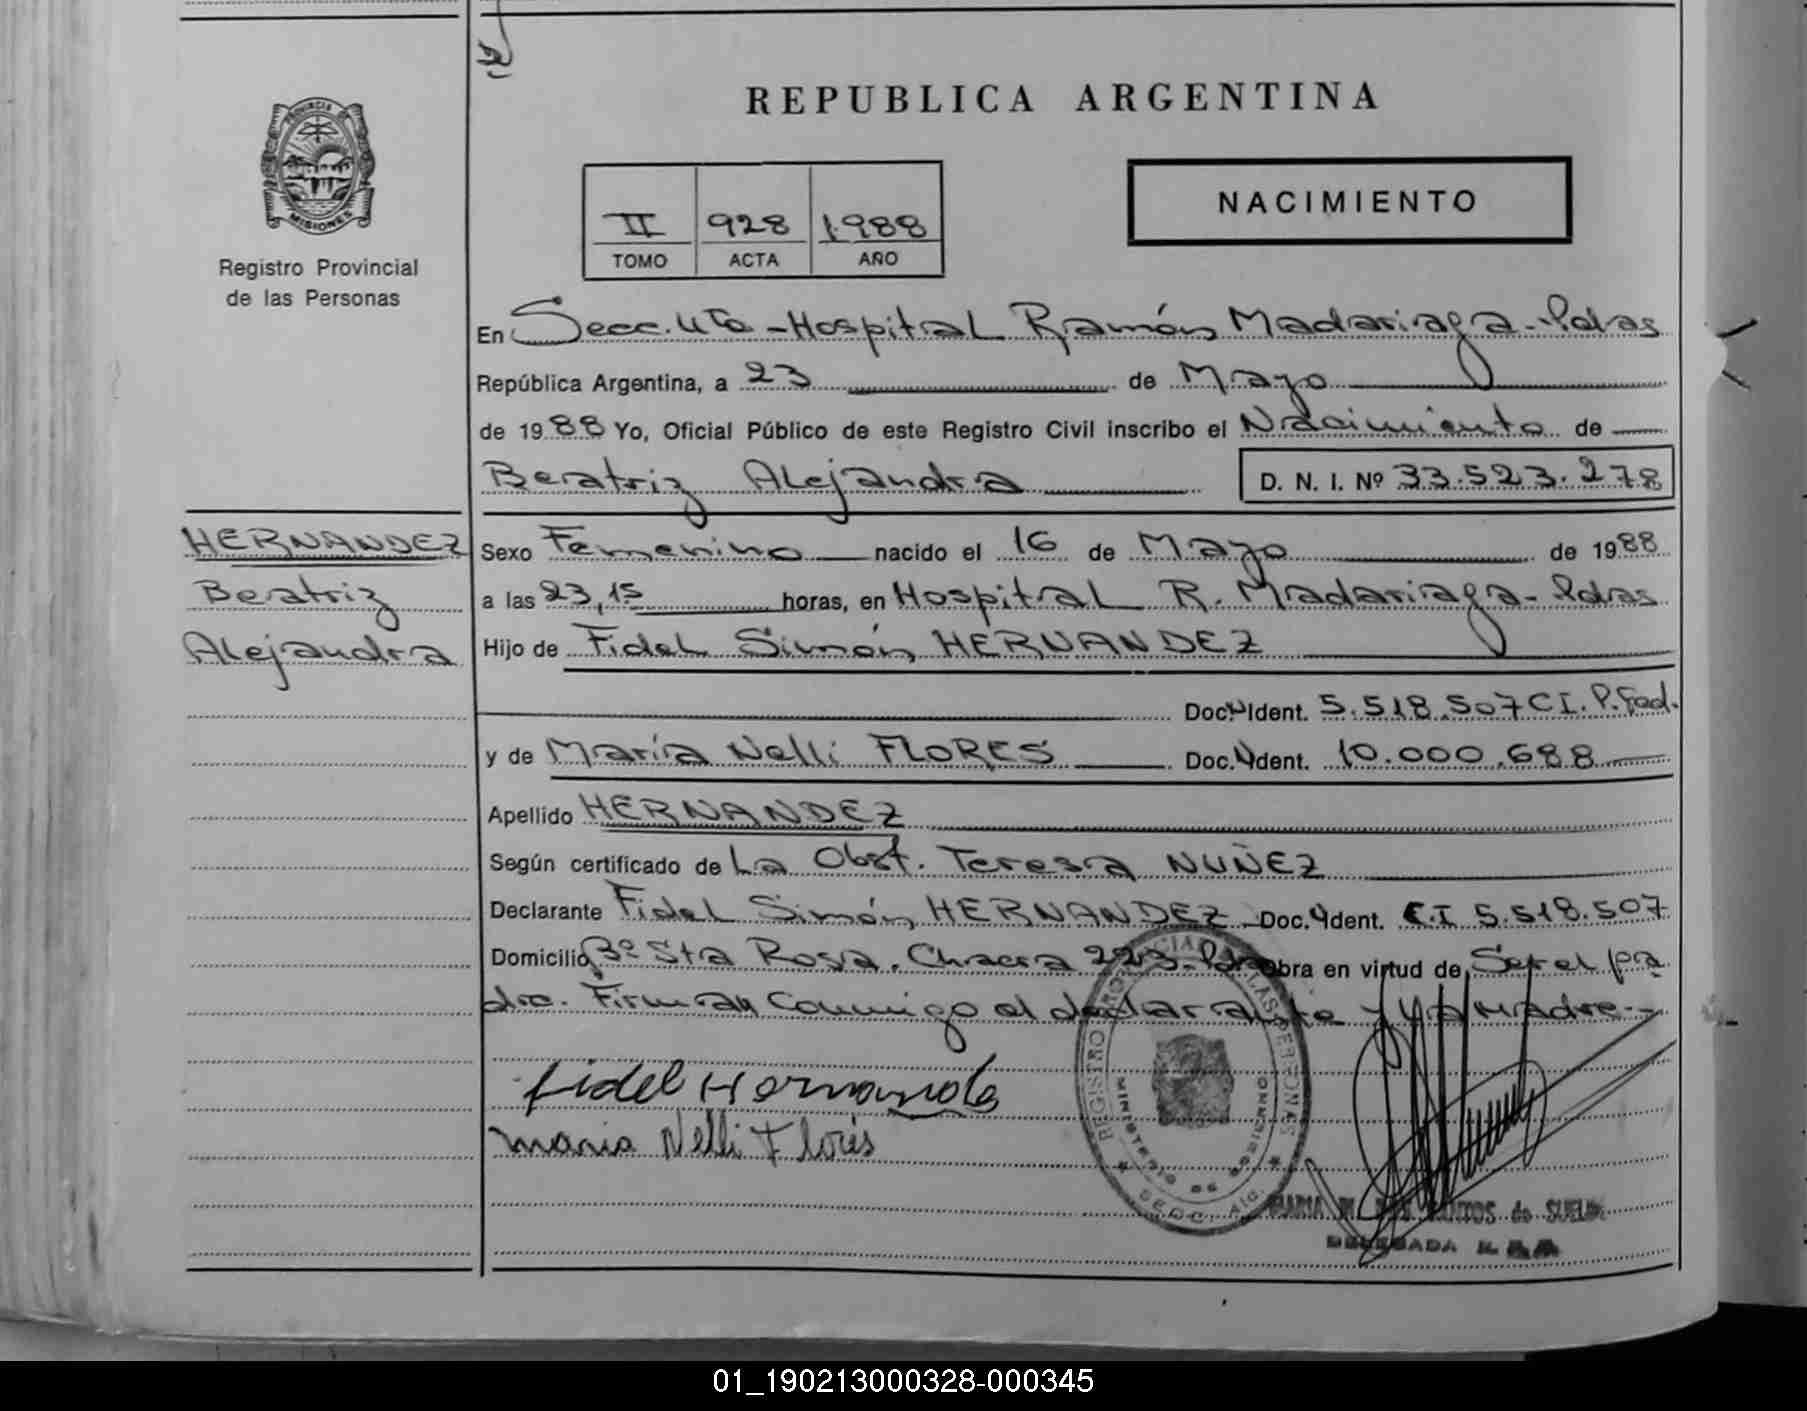 REPUBLICA ARGENTINA
PROVINCIA DE MISIONES
Registro Provincial
de las Personas
II 928 1988
TOMO ACTA AÑO
NACIMIENTO
En Secc. 4ta - Hospital Ramón Madariaga - Pdas
República Argentina, a 23 de Mayo
de 1988 Yo, Oficial Público de este Registro Civil inscribo el Nacimiento de
Beatriz Alejandra D. N. I. Nº 33.523.278
HERNANDEZ
Beatriz
Alejandra
Sexo Femenino nacido el 16 de Mayo de 1988
a las 23,15 horas, en Hospital R. Madariaga - Pdas
Hijo de Fidel Simón HERNANDEZ
Doc. Ident. 5.518.507 C I. P. Fed.
y de María Nelli FLORES Doc. Ident. 10.000.688
Apellido HERNANDEZ
Según certificado de La Obst. Teresa NUÑEZ
Declarante Fidel Simón HERNANDEZ Doc. Ident. C.I 5.518.507
Domicilio Bº Sta Rosa. Chacra 223 - Pdas Obra en virtud de Ser el pa
dre. Firman conmigo el declarante y la Madre -
Fidel Hernandez
maria Nelli Flores
REGISTRO PROVINCIAL DE LAS PERSONAS
MINISTERIO DE GOBIERNO
SECC.
DELEGADA
01_190213000328-000345